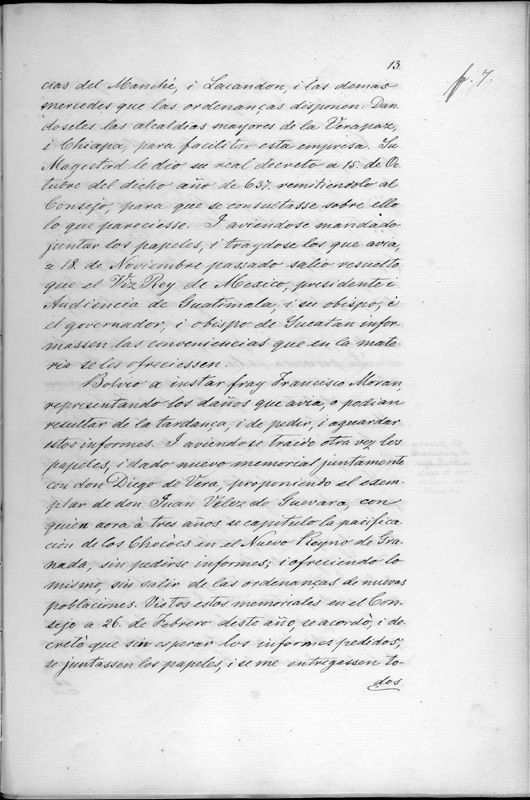 13.
p. 7.
cias del Manché, i Lacandon, i las demas
mercedes que las ordenanças disponen: Dan-
doseles las alcaldias mayores de la Verapaz,
i Chiapa, para facilitar esta empresa. Su
Magestad le dio su real decreto a 15. de Oc-
tubre del dicho año de 637. remitiendolo al
Consejo, para que se consultasse sobre ello
lo que pareciesse. I aviendose mandado
juntar los papeles, i traydose los que avia,
a 18. de Noviembre passado salio resuelto
que el Viz Rey de Mexico, presidente i
Audiencia de Guatimala, i su obispo, i
el governador, i obispo de Yucatan infor-
massen las conveniencias que en la mate-
ria se les ofreciessen.
Bolvio a instar fray Francisco Moran,
representando los daños que avia, o podian
resultar de la tardança, i de pedir, i aguardar
estos informes. I aviendose traido otra vez los
papeles, i dado nuevo memorial juntamente
con don Diego de Vera, proponiendo el exem-
plar de don Juan Velez de Guevara, con
quien aora à tres años se capitulo la pacifica-
cion de los Chocòes en el Nuevo Reyno de Gra-
nada, sin pedirse informes; i ofreciendo lo
mismo, sin salir de las ordenanças de nuevas
poblaciones. Vistos estos memoriales en el Con-
sejo a 26. de Febrero deste año, se acordò, i de-
cretò que sin esperar los informes pedidos,
se juntassen los papeles, i se me entregassen to-
dos